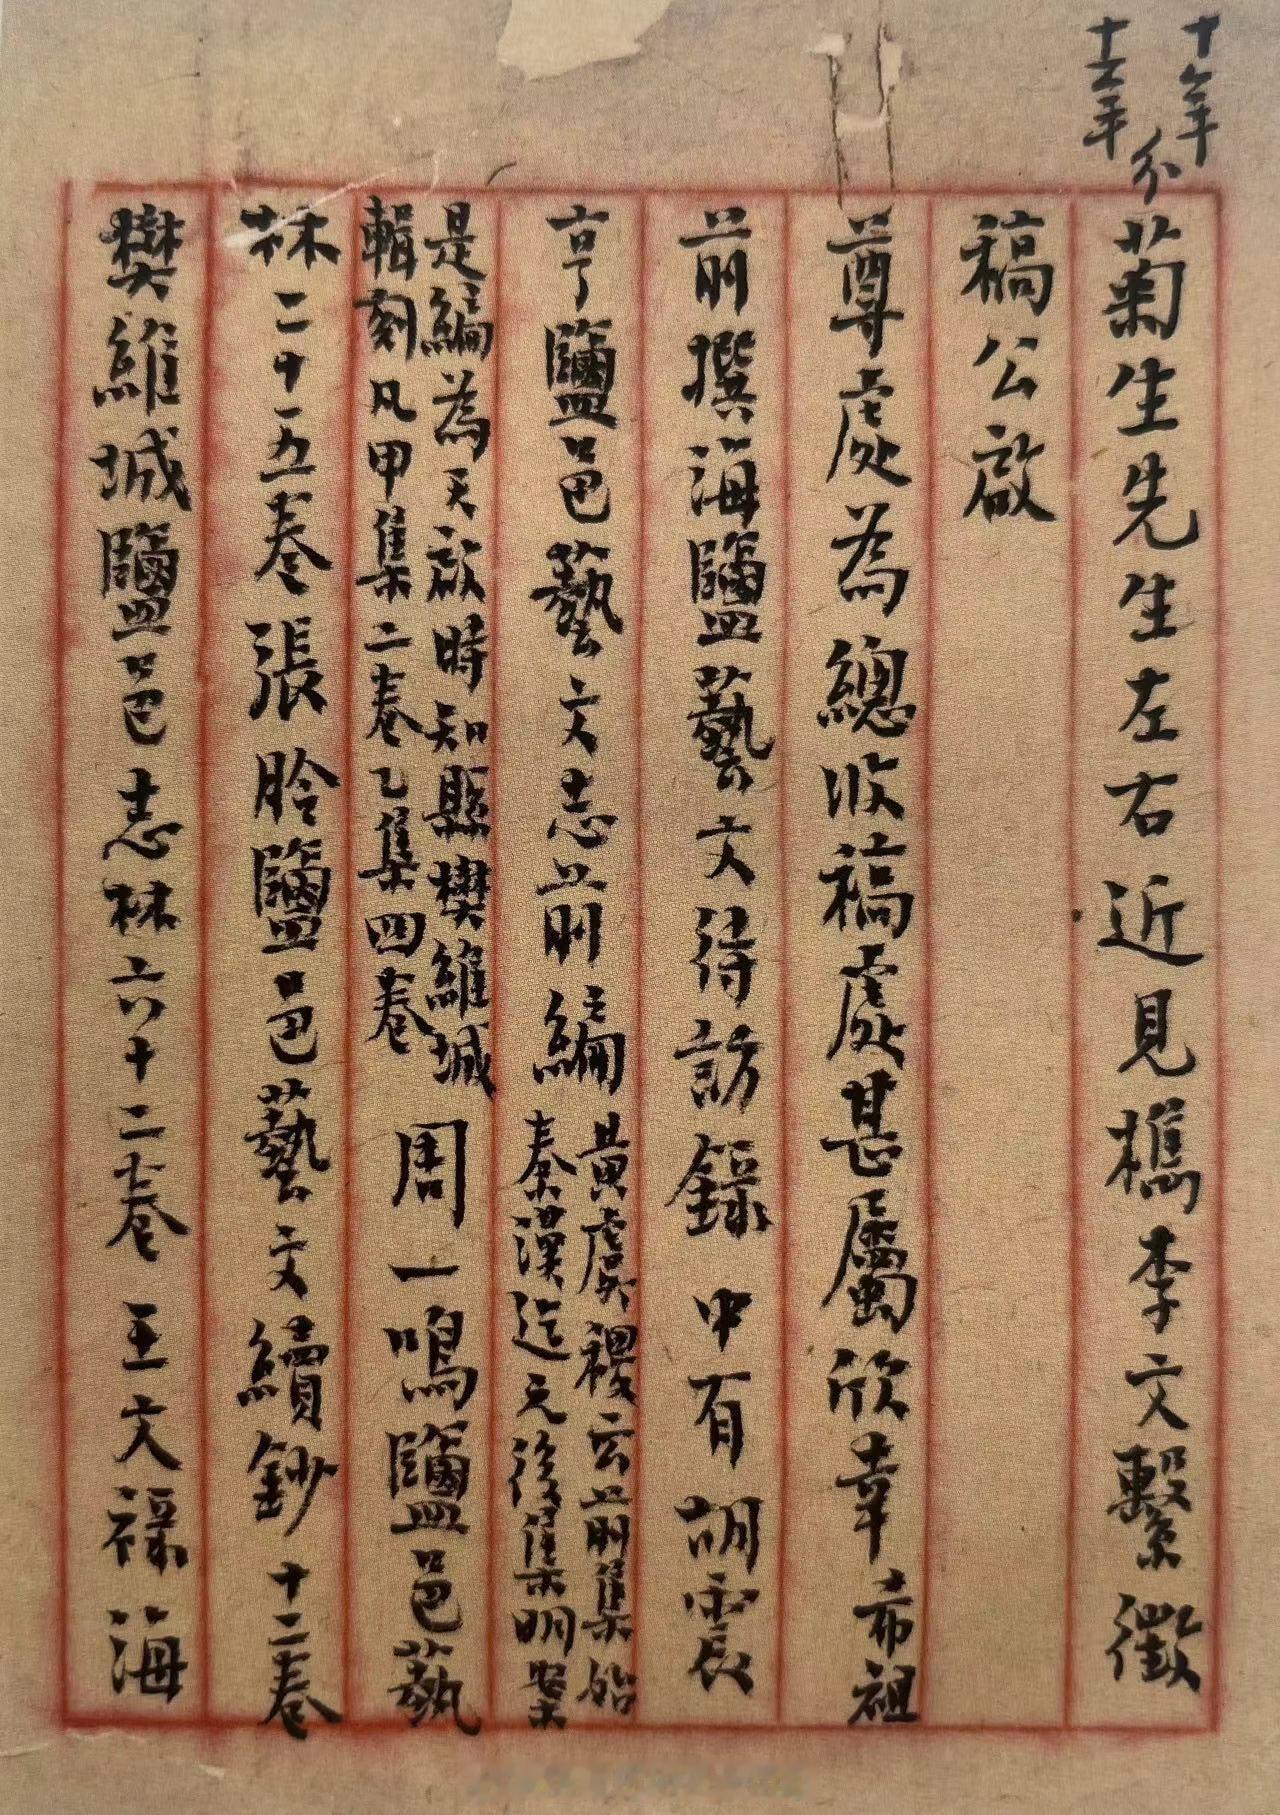 十年
十二年
分
菊生先生左右近見檇李文繫徵
稿公啟
尊處為總收稿處甚屬欣幸希祖
前撰海鹽藝文待訪錄中有胡震
亨鹽邑藝文志前編黃虞稷云前集始
秦漢迄元後集明案
是編為天啟時知縣樊維城
輯刻凡甲集二卷乙集四卷周一鳴鹽邑藝
林二十五卷張昤鹽邑藝文續鈔十二卷
樊維城鹽邑志林六十二卷王文祿海